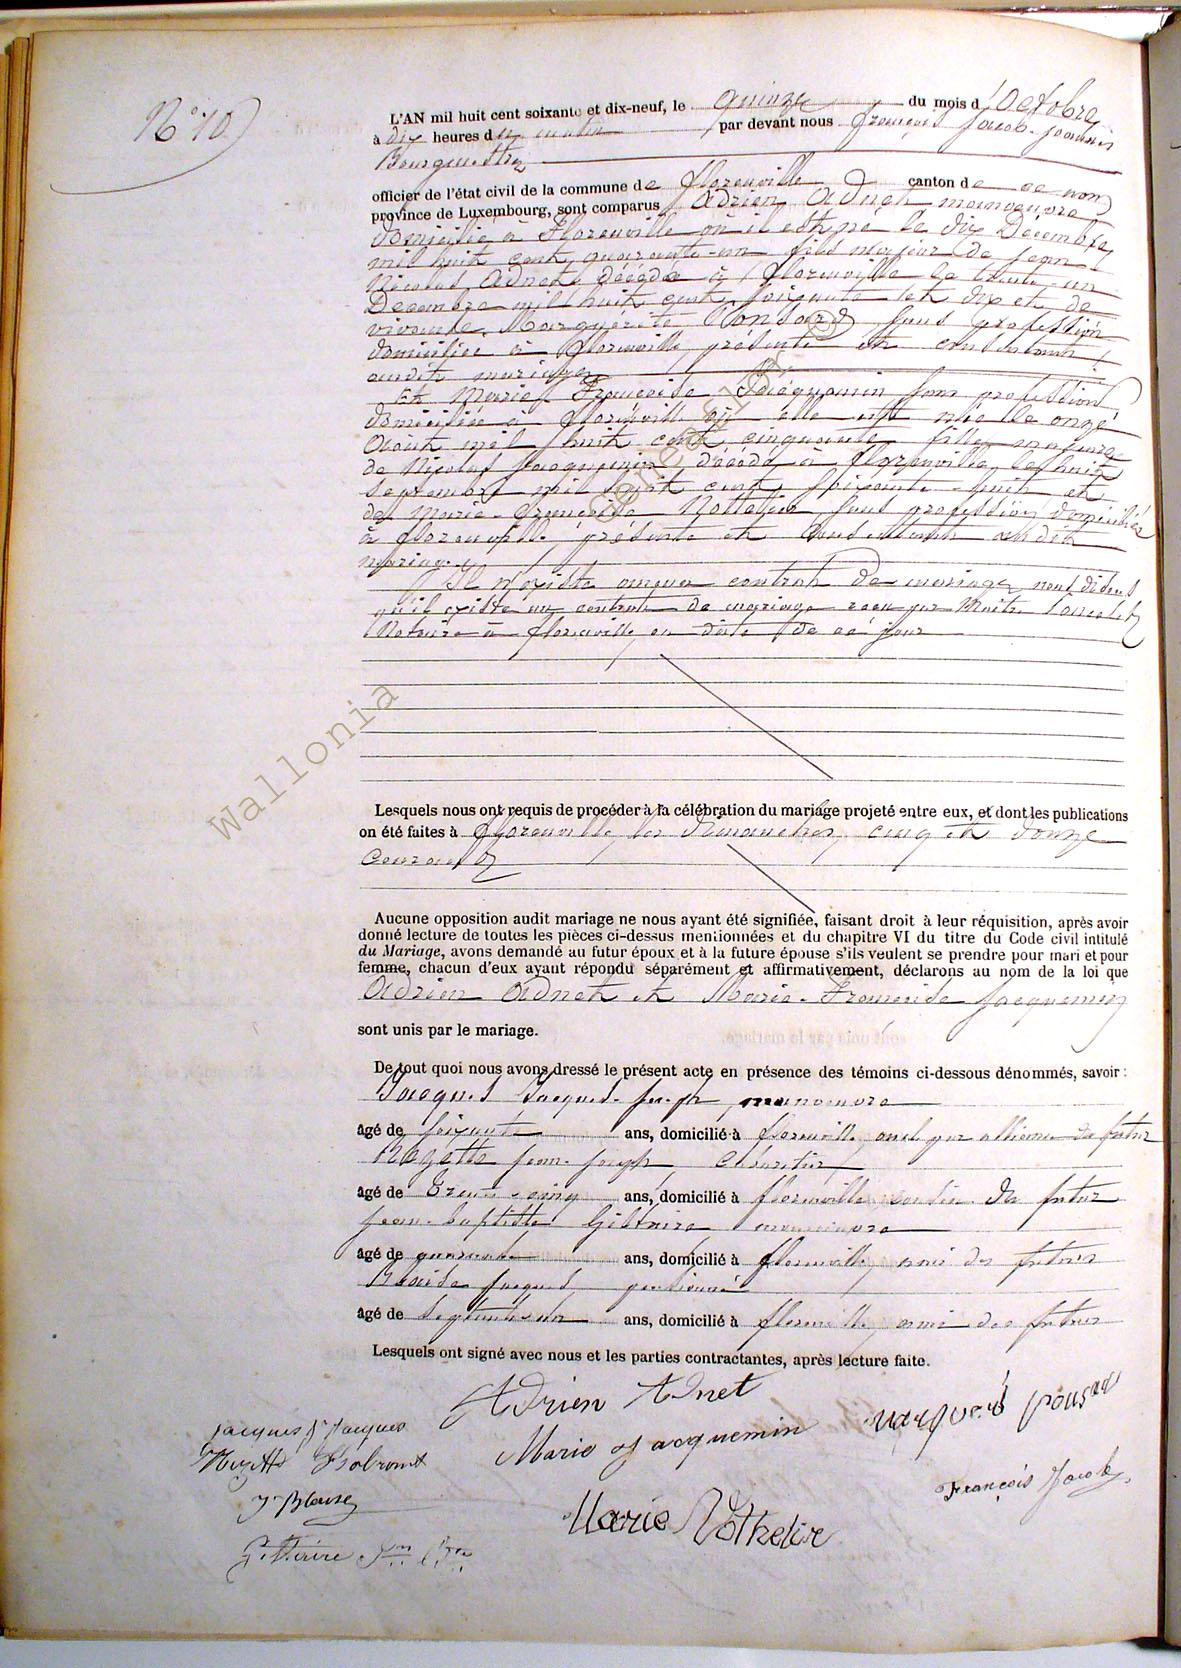 N° 10
L'AN mil huit cent soixante et dix-neuf, le quinze du mois d'Octobre
à dix heures du matin par devant nous François Jacob
Bourgmestre
officier de l'état civil de la commune de Florenville canton de ce nom
province de Luxembourg, sont comparus Adrien Adnet manoeuvre
domicilié à Florenville où il est né le dix Décembre
mil huit cent quarante-un fils majeur de Jean
Nicolas Adnet décédé à Florenville le trente-un
Décembre mil huit cent soixante et dix et de
vivante Marguérite Ponsard sans profession
domiciliée à Florenville présente et consentant
audit mariage
Et Marie Françoise Jacquemin sans profession
domiciliée à Florenville où elle est née le onze
Août mil huit cent cinquante fille majeure
de Nicolas Jacquemin décédé à Florenville le huit
Septembre mil huit cent soixante-huit et
de Marie-Françoise sans profession domiciliée
à Florenville, présente et consentant audit
mariage.
Il n'existe aucun contrat de mariage nous disons
qu'il existe un contrat de mariage reçu par Maître
Notaire à Florenville en date de ce jour
Wallonia
Lesquels nous ont requis de procéder à la célébration du mariage projeté entre eux, et dont les publications
on été faites à Florenville les dimanches cinq et douze
courant
Aucune opposition audit mariage ne nous ayant été signifiée, faisant droit à leur réquisition, après avoir
donné lecture de toutes les pièces ci-dessus mentionnées et du chapitre VI du titre du Code civil intitulé
du Mariage, avons demandé au futur époux et à la future épouse s'ils veulent se prendre pour mari et pour
femme, chacun d'eux ayant répondu séparément et affirmativement, déclarons au nom de la loi que
Adrien Adnet et Marie-Françoise Jacquemin
sont unis par le mariage.
De tout quoi nous avons dressé le présent acte en présence des témoins ci-dessous dénommés, savoir :
Jacques Jacques-Joseph manoeuvre
âgé de soixante ans, domicilié à Florenville, oncle par alliance du futur
Jean-Joseph
âgé de trente-cinq ans, domicilié à Florenville cousin du futur
Jean-Baptiste manoeuvre
âgé de quarante ans, domicilié à Florenville, ami des futurs
Jacques pensionné
âgé de ans, domicilié à Florenville, ami des futurs
Lesquels ont signé avec nous et les parties contractantes, après lecture faite.
Adrien Adnet
Jacques J Jacques
Marie Jacquemin
François Jacob
Marie